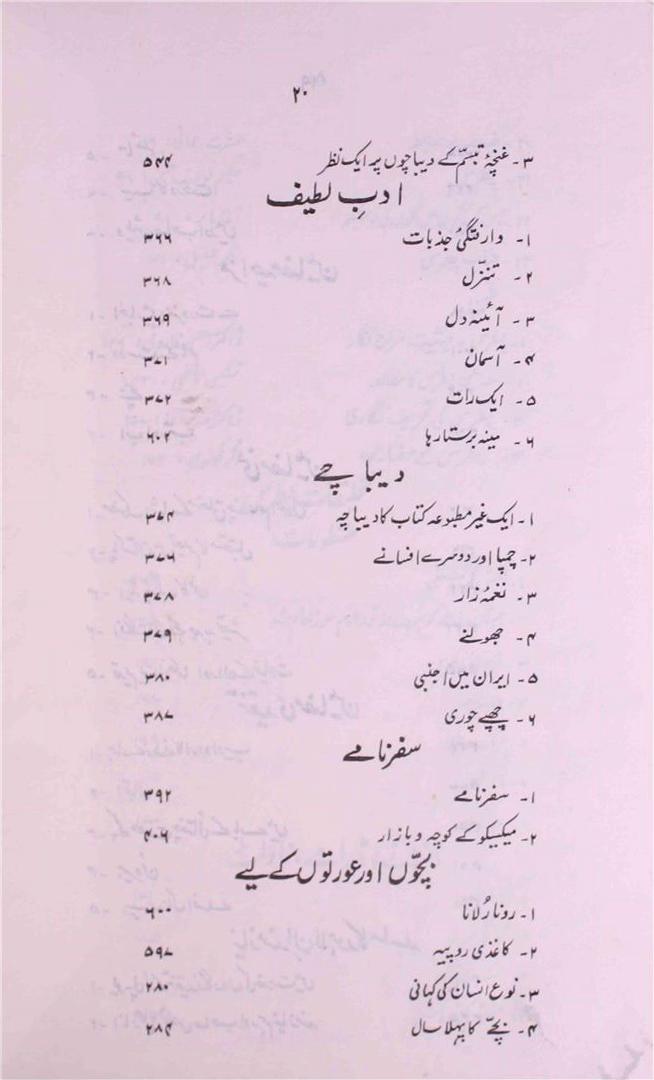 ۲۰
۳۔ غنچۂ تبسّم کے دیباچوں پر ایک نظر ۵۴۴
ادبِ لطیف
۱۔ وارفتگیٔ جذبات ۳۶۶
۲۔ تنزّل ۳۶۸
۳۔ آئینۂ دل ۳۶۹
۴۔ آسمان ۳۷۱
۵۔ ایک رات ۳۷۲
۶۔ مینہ برستا رہا ۶۰۲
دیباچے
۱۔ ایک غیر مطبوعہ کتاب کا دیباچہ ۳۷۴
۲۔ چمپا اور دوسرے افسانے ۳۷۶
۳۔ نغمۂ زار ۳۷۸
۴۔ جھولنے ۳۷۹
۵۔ ایران میں اجنبی ۳۸۰
۶۔ چھپے چوری ۳۸۷
سفرنامے
۱۔ سفرنامے ۳۹۲
۲۔ میکسیکو کے کوچہ و بازار ۴۰۶
بچّوں اور عورتوں کے لیے
۱۔ رونا رُلانا ۶۰۰
۲۔ کاغذی روپیہ ۵۹۷
۳۔ نوع انسان کی کہانی ۲۸۰
۴۔ بچے کا پہلا سال ۲۸۴